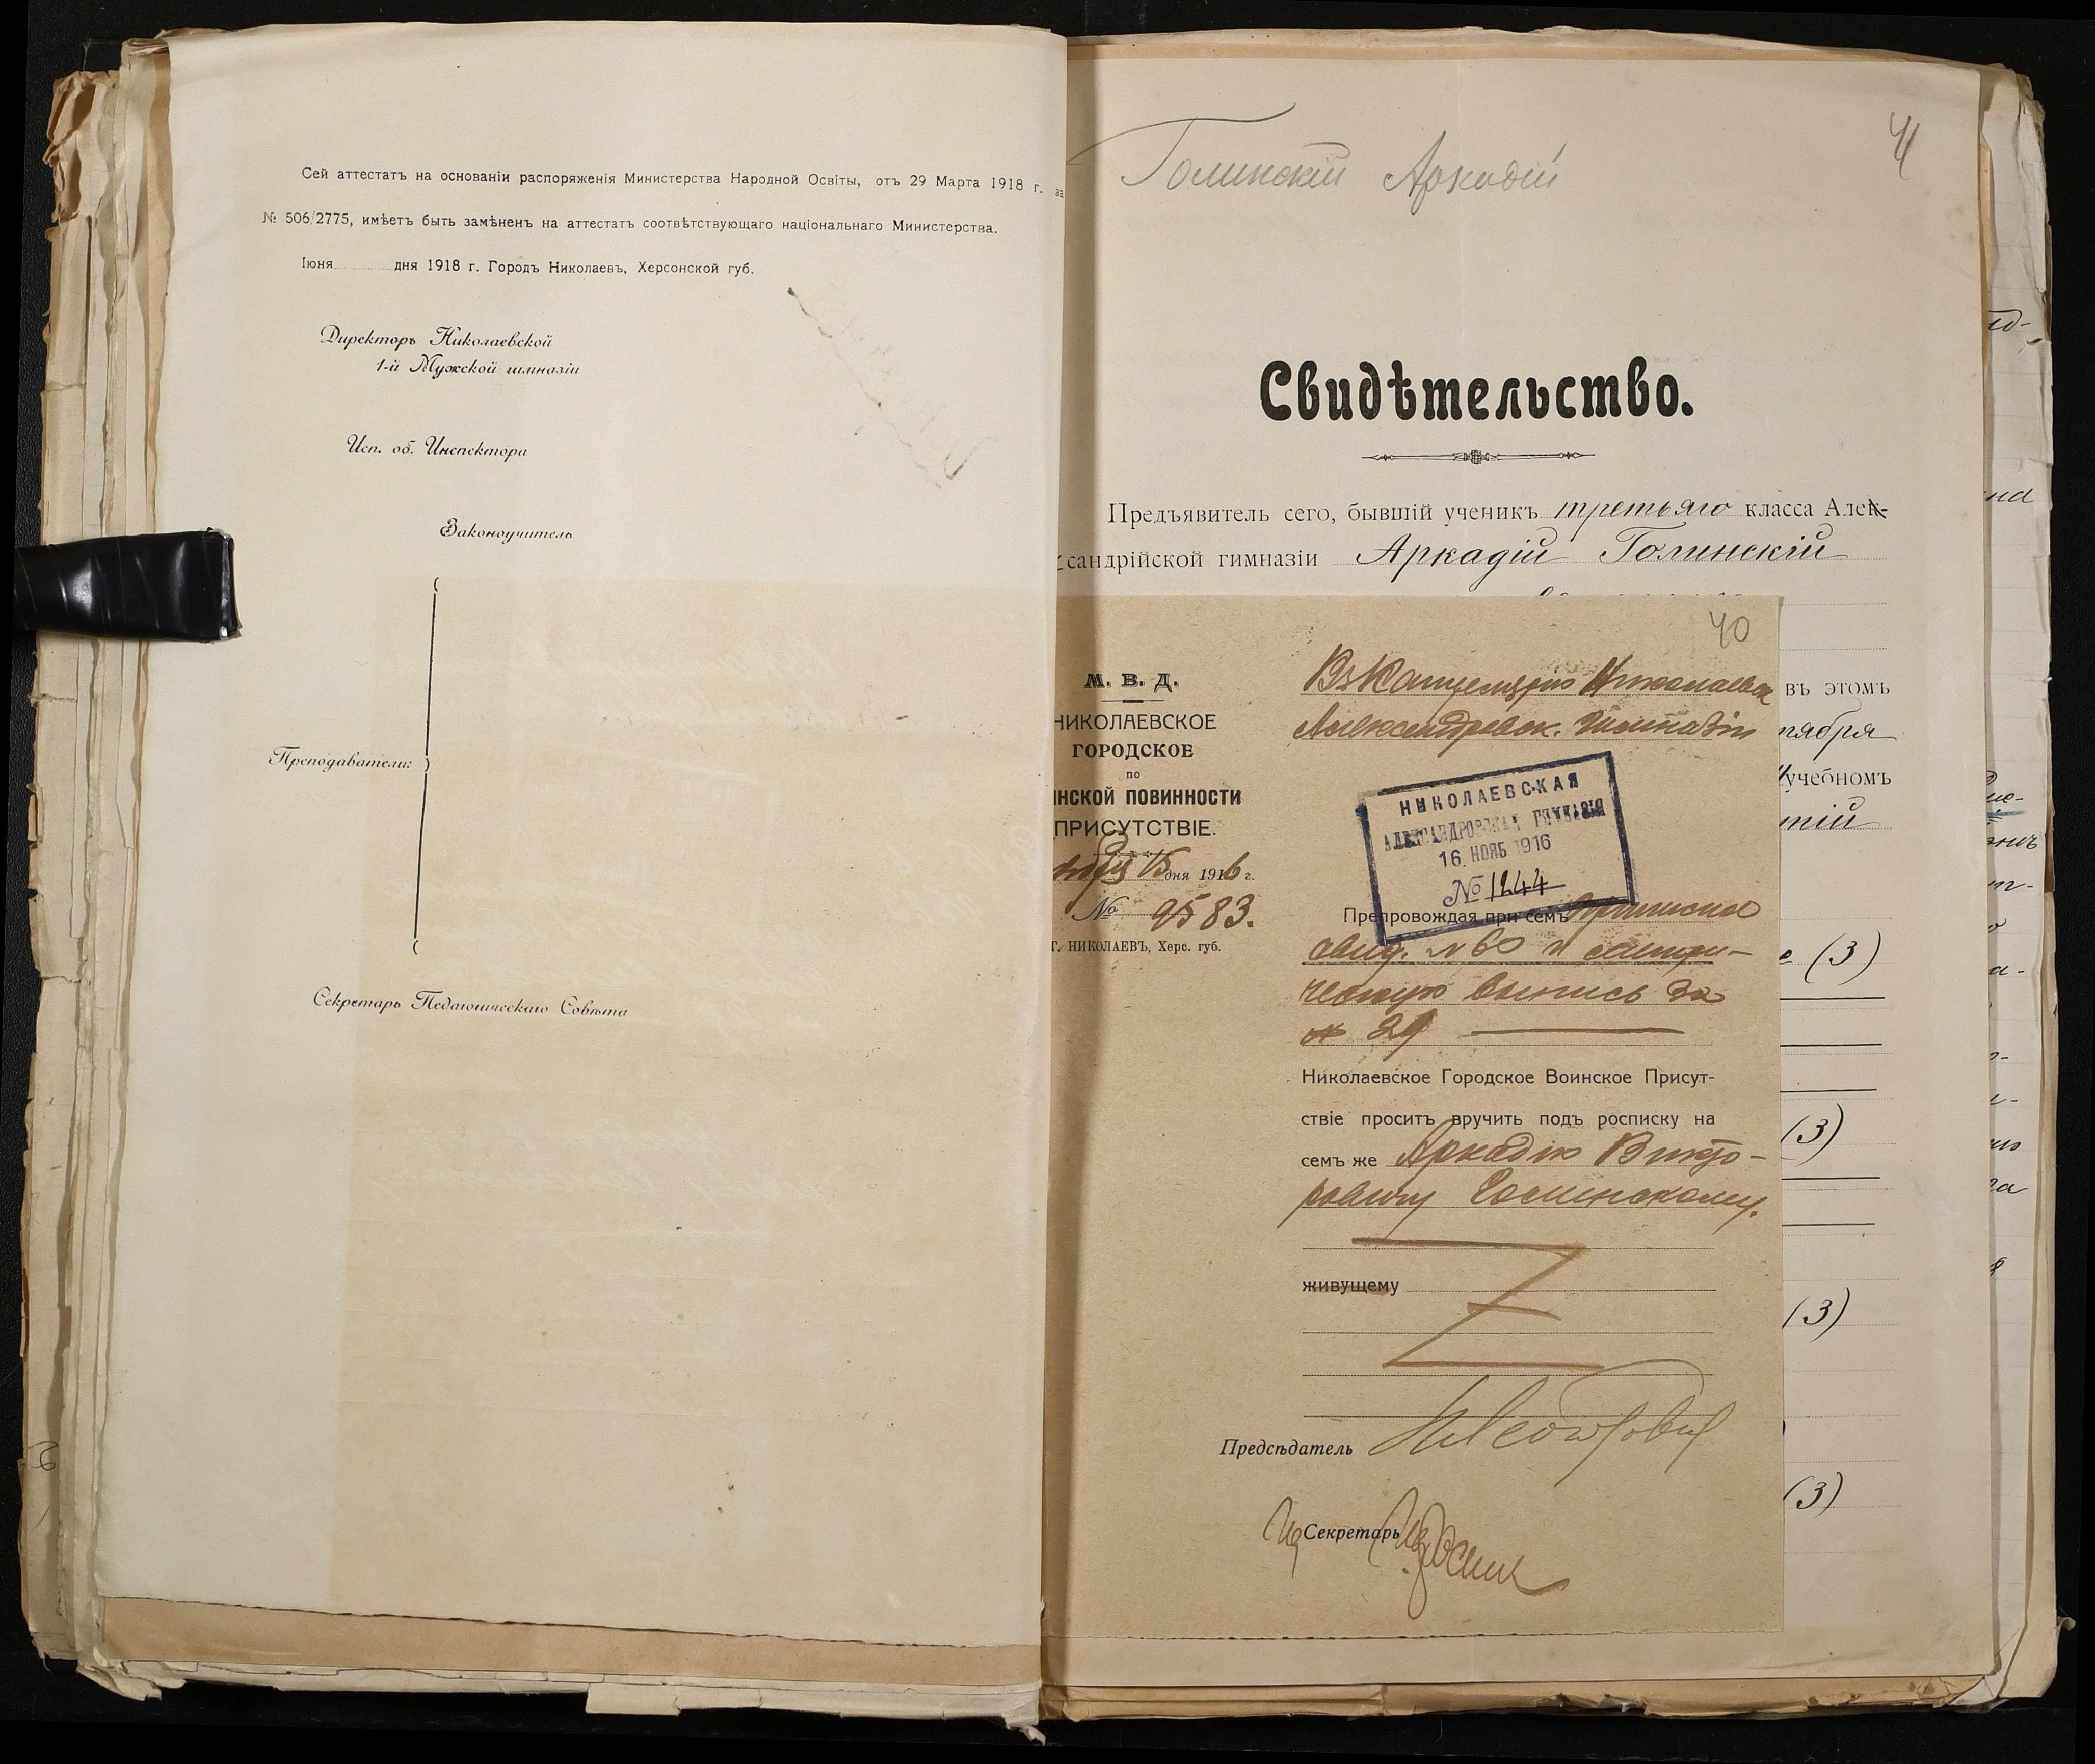 Сей аттестатъ на основаніи распоряженія Министерства Народной Освіты, отъ 29 Марта 1918 г. за
№ 506/2775, имѣетъ быть замѣненъ на аттестатъ соотвѣтствующаго національнаго Министерства.
Іюня дня 1918 г. Городъ Николаевъ, Херсонской губ.
Директоръ Николаевской
1-й Мужской гимназіи
Исп. об. Инспектора
Законоучитель
Преподаватели:
Секретарь Педагогическаго Совѣта
41
Голинскій Аркадій
Свидѣтельство.
Предъявитель сего, бывшій ученикъ третьяго класса Алек-
сандрійской гимназіи Аркадій Голинскій
въ этомъ
тября
учебномъ
тій
(3)
(3)
(3)
(3)
40
М. В. Д.
НИКОЛАЕВСКОЕ
ГОРОДСКОЕ
по
ИНСКОЙ ПОВИННОСТИ
ПРИСУТСТВІЕ.
15 дня 1916 г.
№ 9583.
Г. НИКОЛАЕВЪ, Херс. губ.
Въ Канцелярію Николаевск
Александровск. Гимназіи
НИКОЛАЕВСКАЯ
АЛЕКСАНДРОВСКАЯ ГИМНАЗІЯ
16. НОЯБ 1916
№ 1244
Препровождая при семъ приписное
свид. № 60 и метри-
ческую выпись за
№ 29
Николаевское Городское Воинское Присут-
ствіе проситъ вручить подъ росписку на
семъ же Аркадію Викто-
ровичу Голинскому.
живущему
Предсѣдатель
Секретарь